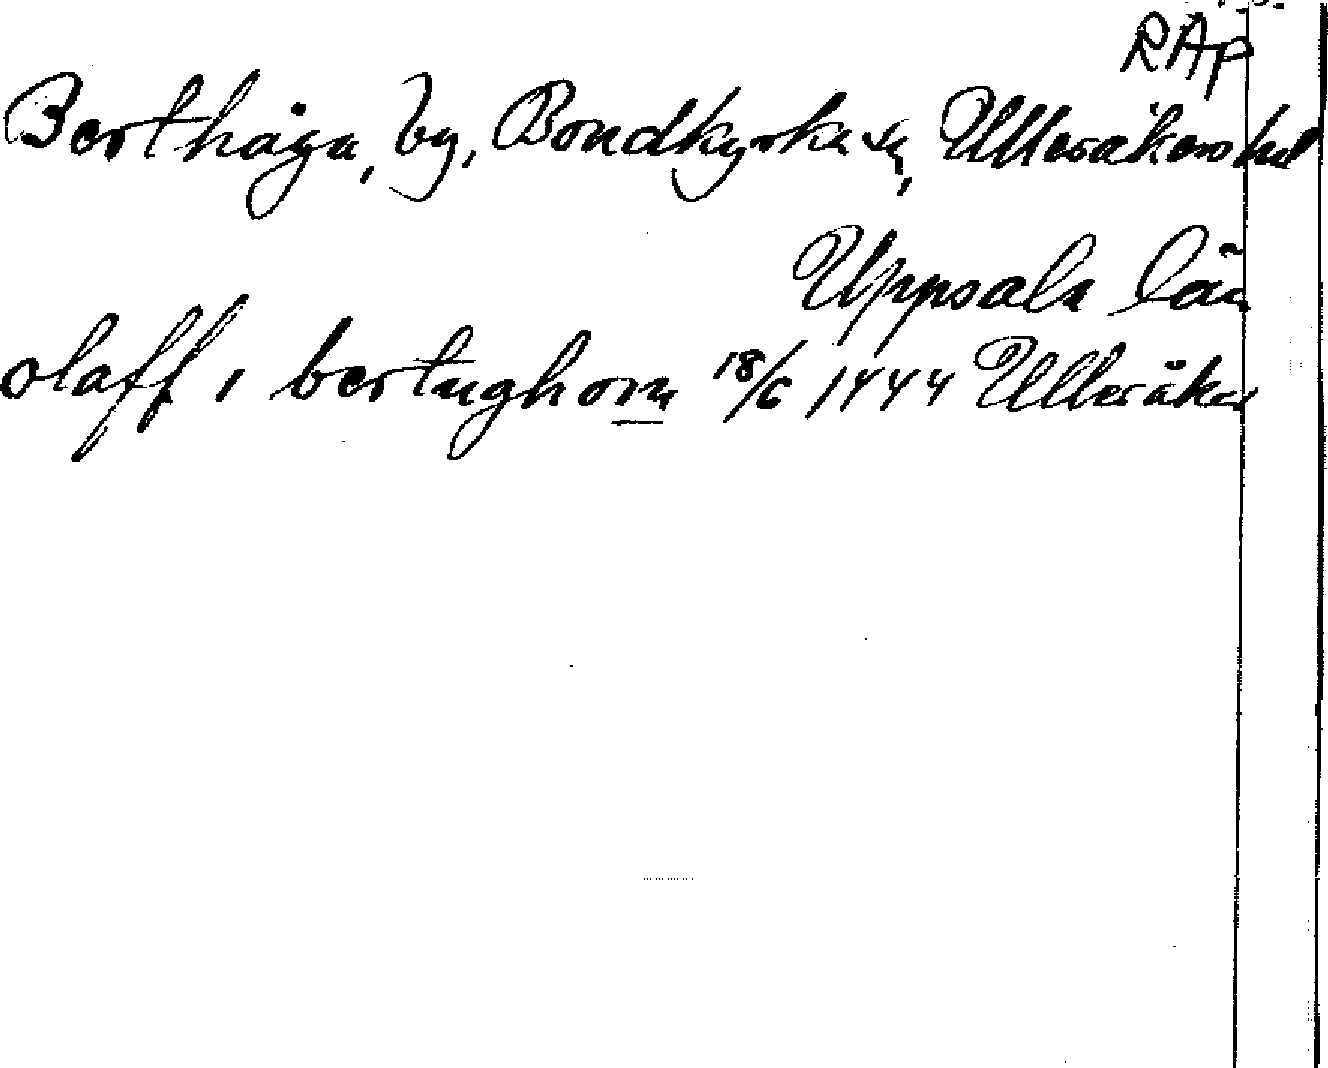 RAp
Berthåga, by, Bondkyrka sn, Ulleråkers hd
Uppsala län
olaff i bertughom 18/6 1444 Ulleråker